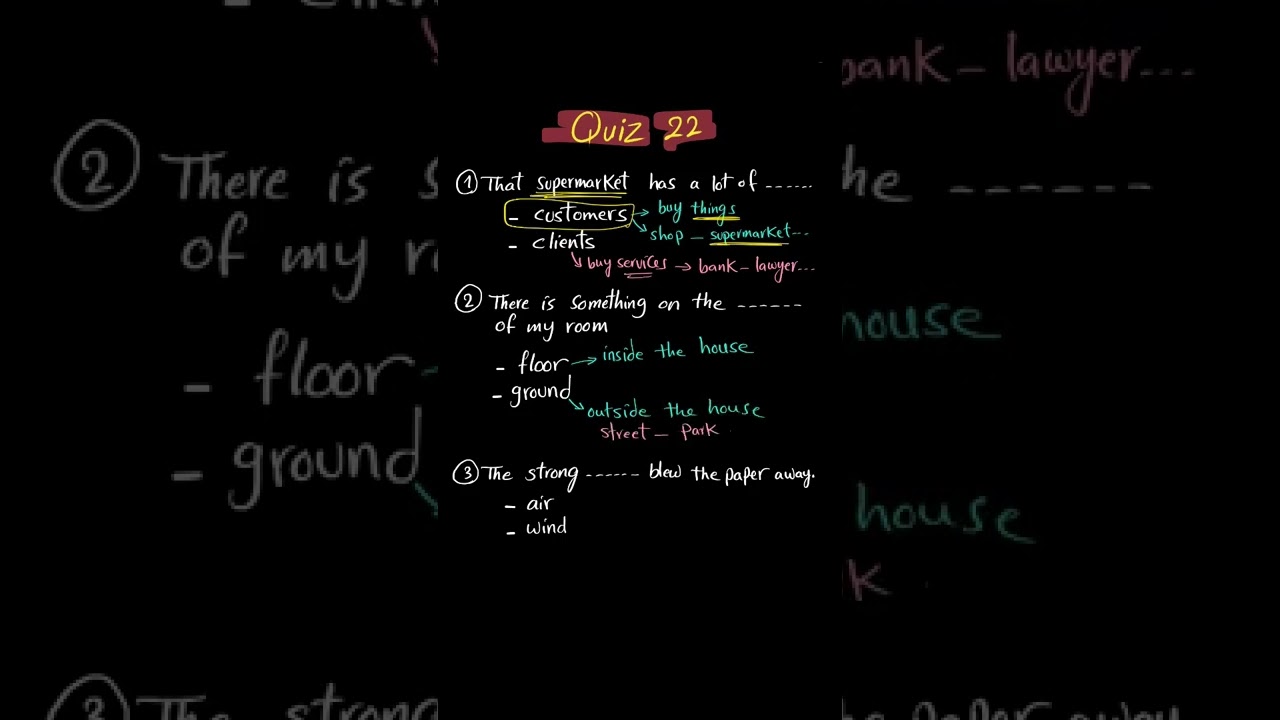 Quiz 22
① That supermarket has a lot of ------
- customers → buy things
↘ shop - supermarket...
- clients
↘ buy services → bank - lawyer...
② There is something on the ------
of my room
- floor → inside the house
- ground
↘ outside the house
street - park
③ The strong ------ blew the paper away.
- air
- wind